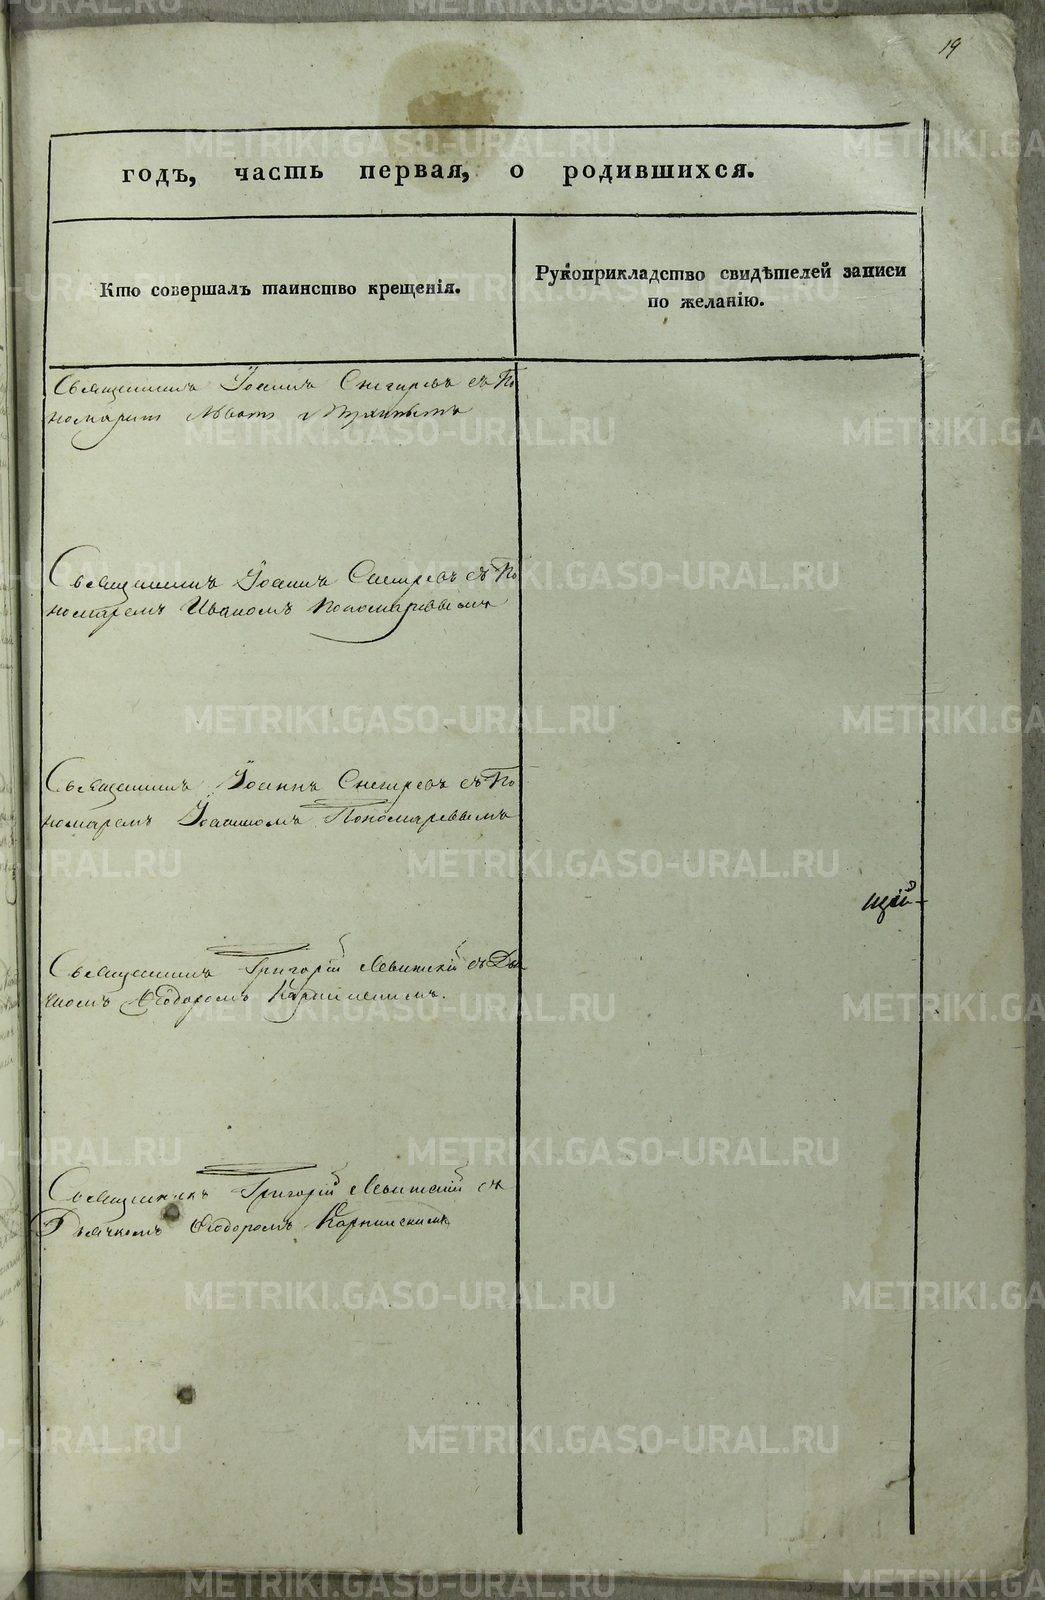 19
годъ, часть первая, о родившихся.
Кто совершалъ таинство крещенія.
Рукоприкладство свидѣтелей записи
по желанію.
Священникъ Іоаннъ Снегиревъ съ По
номаремъ
Священникъ Іоаннъ Снегиревъ съ По
номаремъ Иваномъ Пономаревымъ
Священникъ Іоаннъ Снегиревъ съ По
номаремъ Іоанномъ Пономаревымъ
щій
Священникъ Григорій Левитскій съ Дья
чкомъ Ѳеодоромъ Карпинскимъ.
Священникъ Григорій Левитскій съ
Дьячкомъ Ѳеодоромъ Карпинскимъ
METRIKI.GASO-URAL.RU